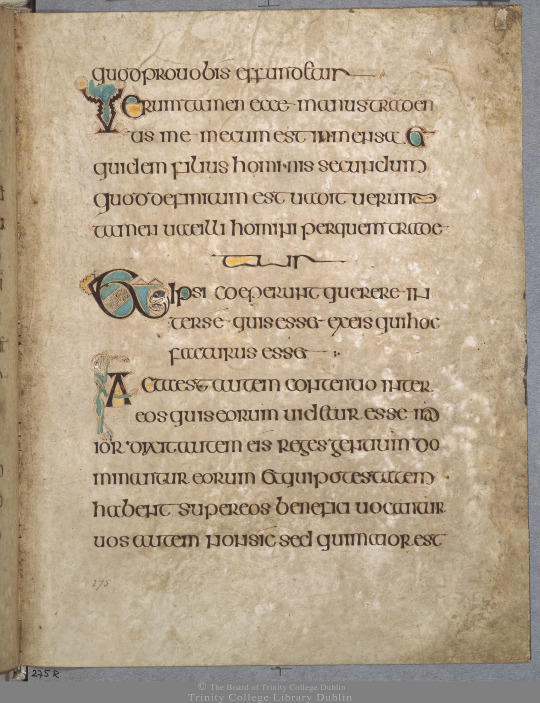 quod pro uobis effundetur
Verum tamen ecce manus traden
tis me mecum est in mensa et
quidem filius hominis secundum
quod definitum est uadit uerum
tamen uae illi homini per quem trade
tur
Et ipsi coeperunt querere in
ter se quis esset ex eis qui hoc
facturus esset
Facta est autem contentio inter
eos quis eorum uidetur esse ma
ior dixit autem eis reges gentium do
minantur eorum et qui potestatem
habent super eos benefici uocantur
uos autem non sic sed qui maior est
275
275 R
© The Board of Trinity College Dublin
Trinity College Library Dublin